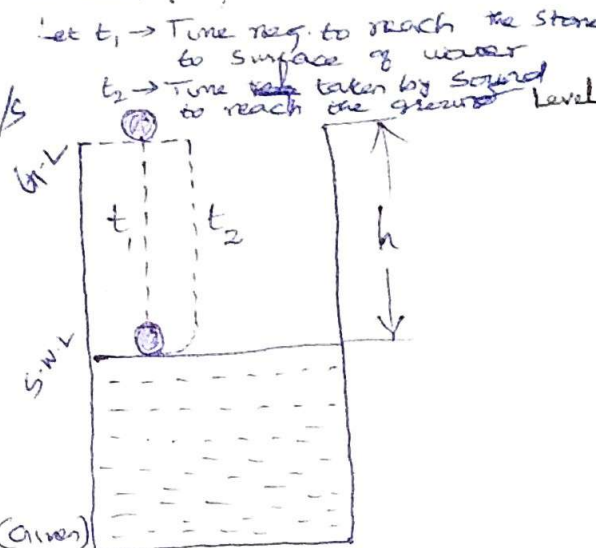 Let t₁ → Time req. to reach the Stone
to Surface of water
t₂ → Time taken by Sound
to reach the ground Level
/s
G.L
t₁
t₂
h
S.W.L
(Given)